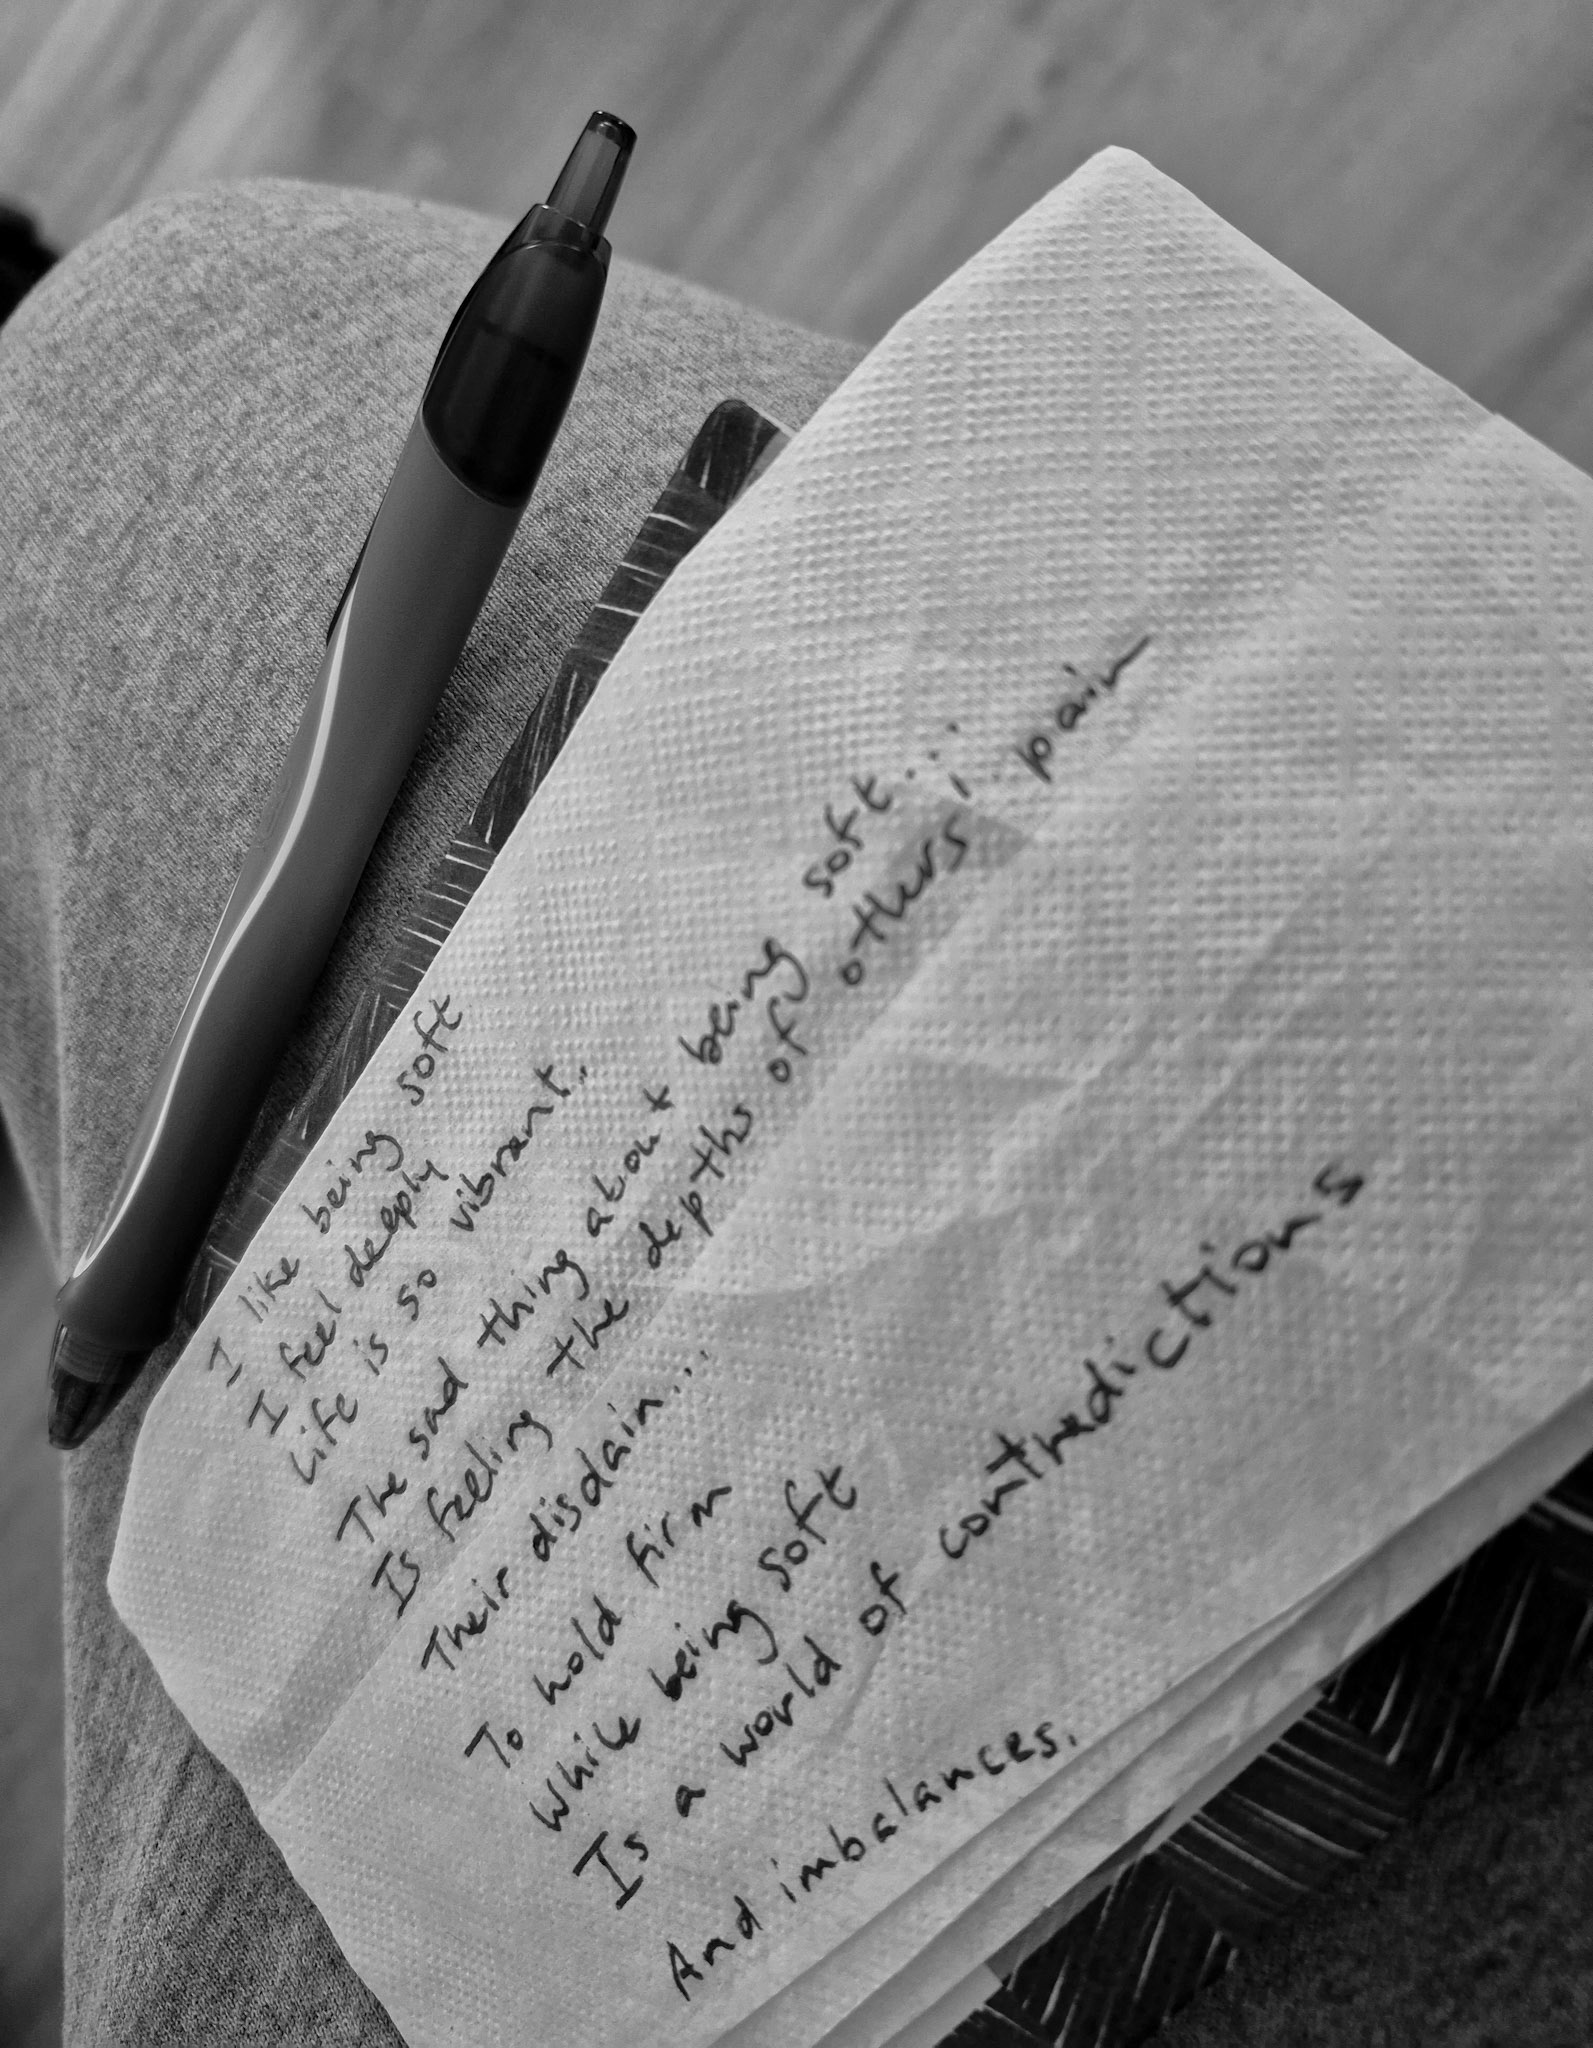 I like being soft
I feel deeply
Life is so vibrant..
The sad thing about being soft...
Is feeling the depths of others; pain
Their disdain...
To hold firm
While being soft
Is a world of contradictions
And imbalances.